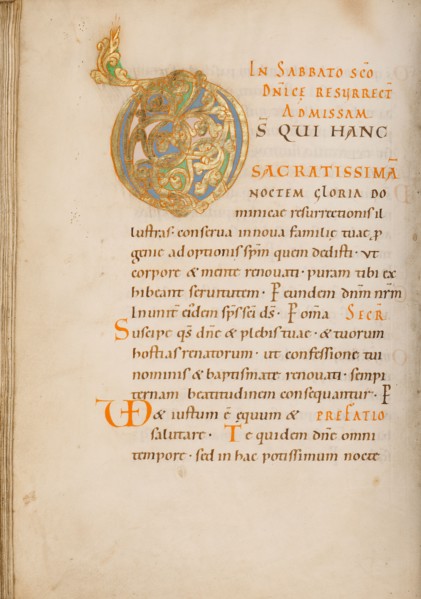 IN SABBATO SCO
DNICE RESURRECT
ADMISSAM
DS QUI HANC
SACRATISSIMA
NOCTEM GLORIA DO
minicae resurrectionis il
lustras· conserva in nova familię tuae p
genie adoptionis spm quem dedisti· ut
corpore & mente renovati· puram tibi ex
hibeant servitutem· P eundem dnm nrm
In unit eidem sps sci ds· P oma SECR
Suscipe qs dne & plebis tuae· & tuorum
hostias renatorum· ut confessione tui
nominis & baptismate renovati· sempi
ternam beatitudinem consequantur· P
VD & iustum ē equum & PREFATIO
salutare· Te quidem dne omni
tempore· sed in hac potissimum nocte